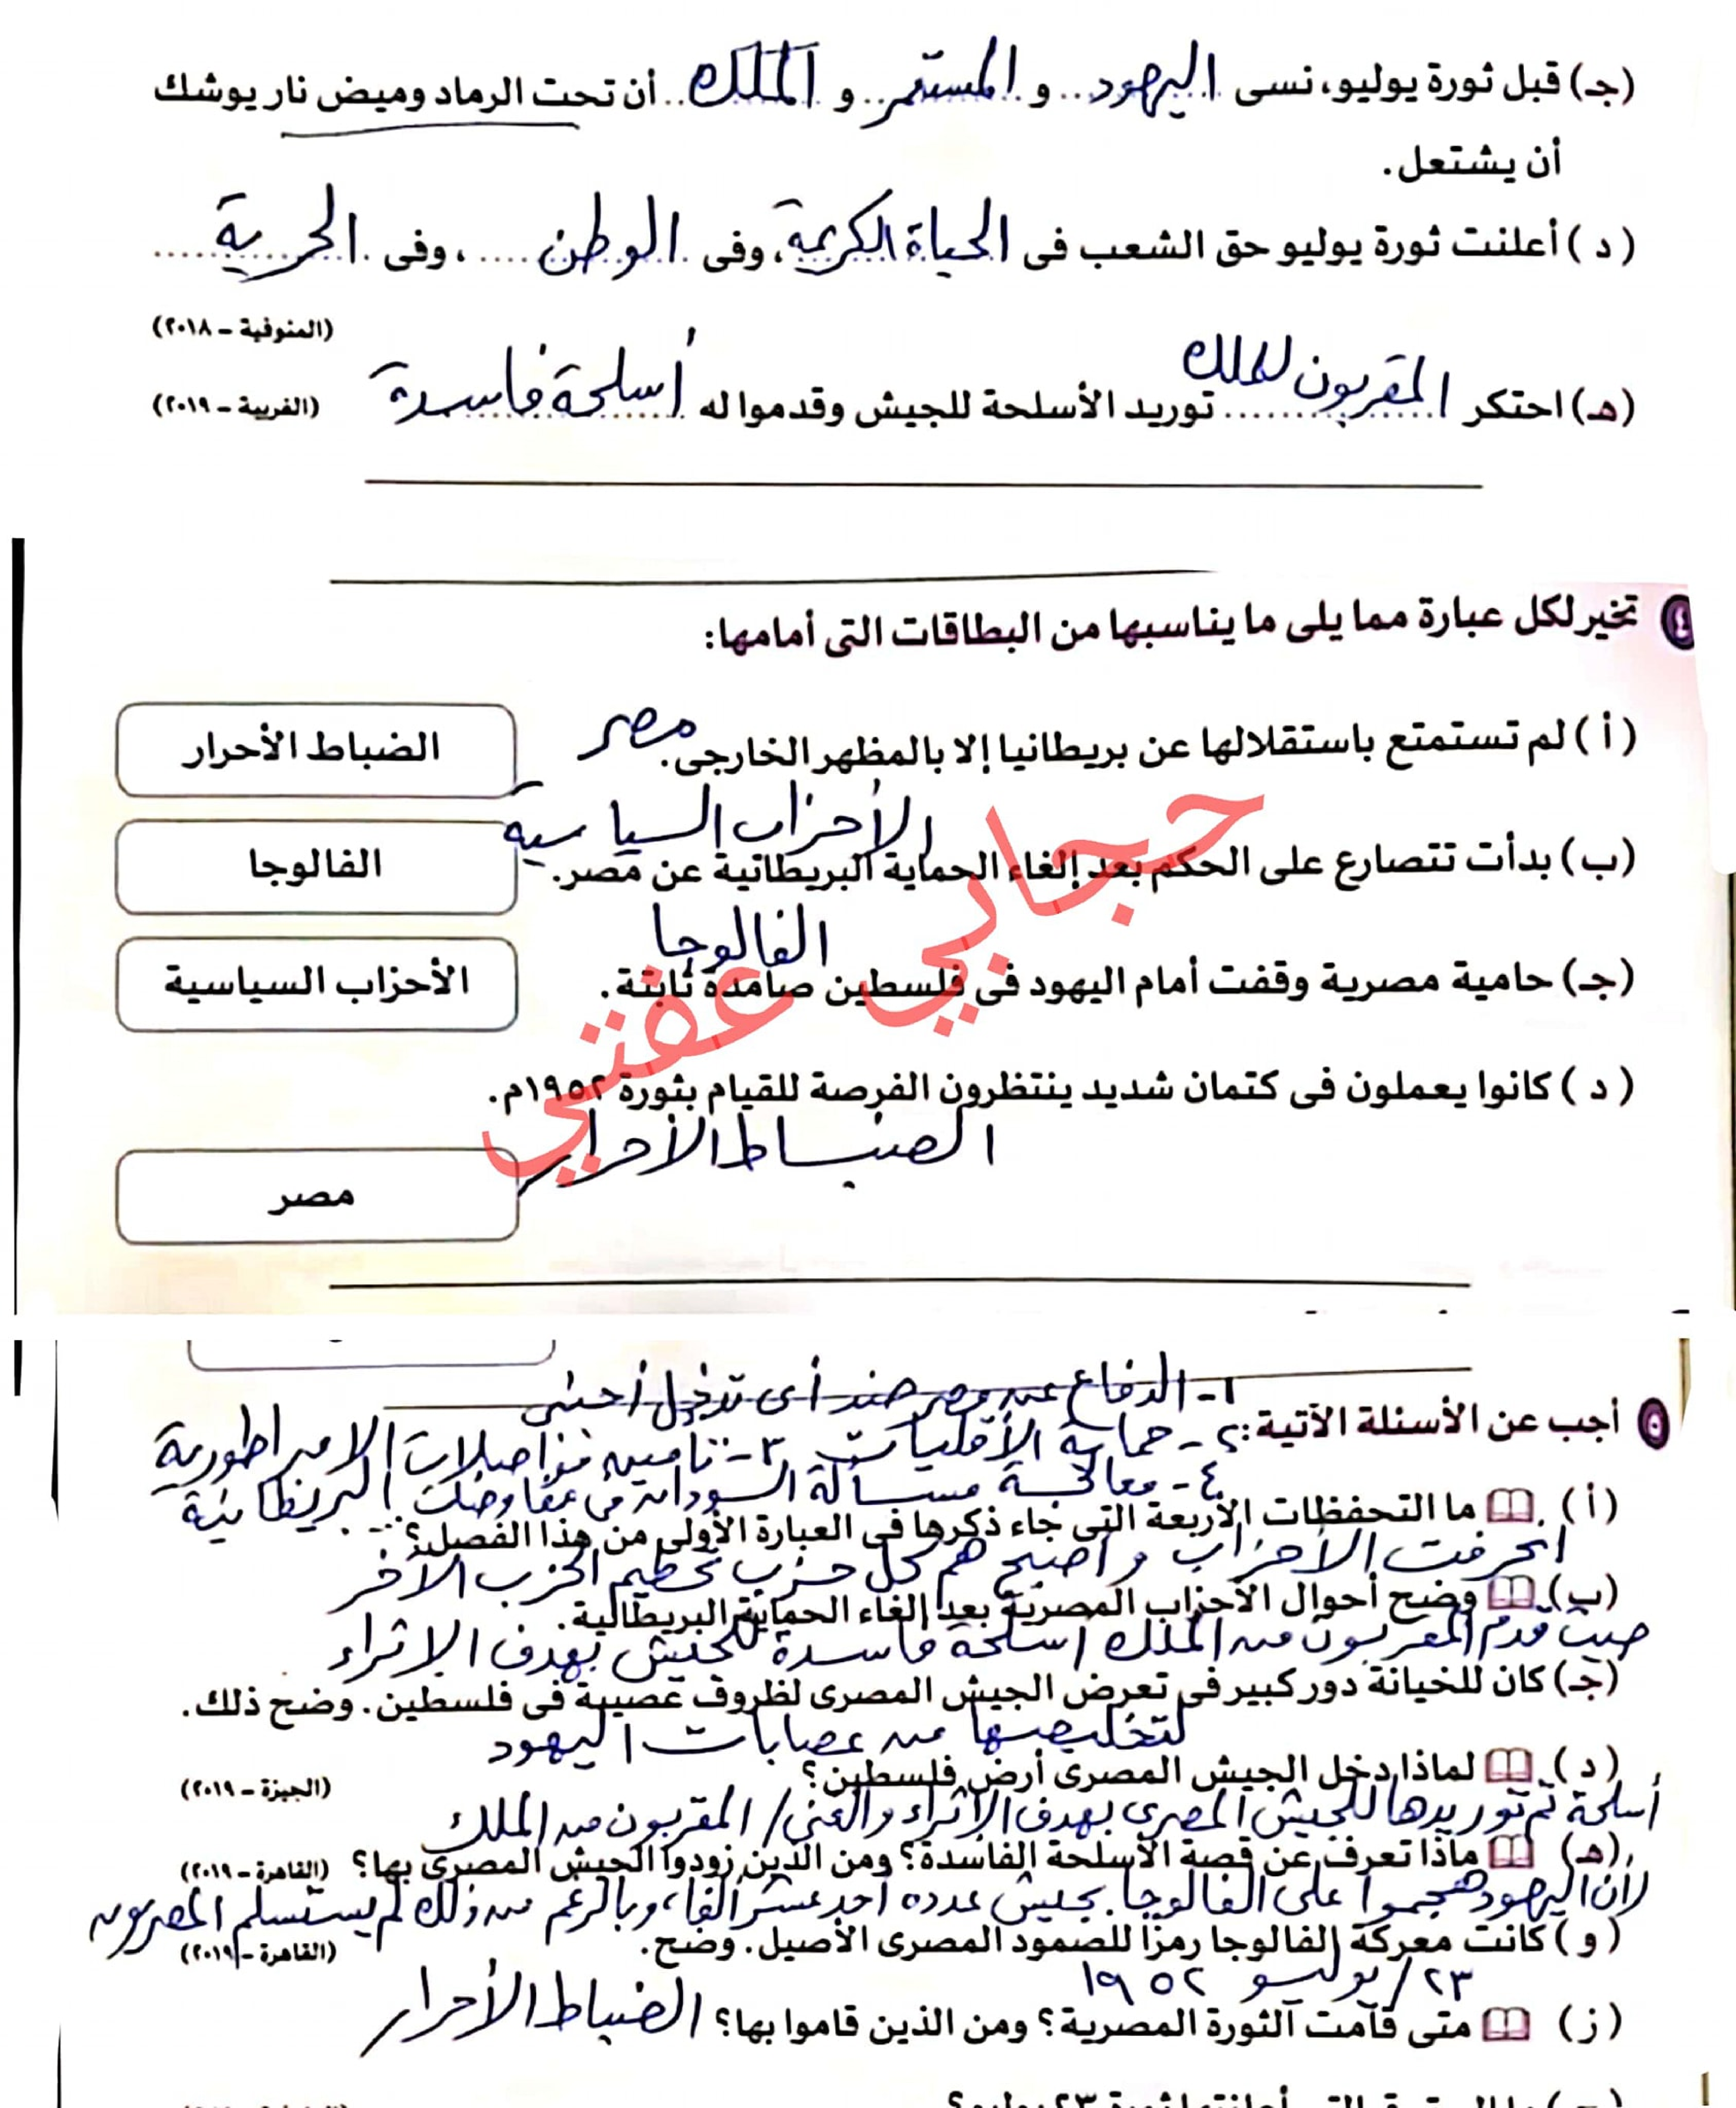 (جـ) قبل ثورة يوليو، نسى اليهود و المستعمر و الملك أن تحت الرماد وميض نار يوشك
أن يشتعل.
(د) أعلنت ثورة يوليو حق الشعب فى الحياة الكريمة، وفى الوطن، وفى الحرية
(المنوفية - ٢٠١٨)
(هـ) احتكر المقربون للملك توريد الأسلحة للجيش وقدموا له أسلحة فاسدة (الغربية - ٢٠١٩)
٤ تخير لكل عبارة مما يلى ما يناسبها من البطاقات التى أمامها:
(أ) لم تستمتع باستقلالها عن بريطانيا إلا بالمظهر الخارجى. مصر
الضباط الأحرار
الأحزاب السياسية
(ب) بدأت تتصارع على الحكم بعد إلغاء الحماية البريطانية عن مصر.
الفالوجا
الفالوجا
(جـ) حامية مصرية وقفت أمام اليهود فى فلسطين صامدة ثابتة.
الأحزاب السياسية
(د) كانوا يعملون فى كتمان شديد ينتظرون الفرصة للقيام بثورة ١٩٥٢م.
الضباط الأحرار
مصر
حجابي عفتي
١- الدفاع عن مصر ضد أى تدخل أجنبى
٥ أجب عن الأسئلة الآتية:
٢- حماية الأقليات ٣- تأمين مواصلات الامبراطورية البريطانية
٤- معالجة مسألة السودان فى مفاوضات
(أ) ما التحفظات الأربعة التى جاء ذكرها فى العبارة الأولى من هذا الفصل؟
انحرفت الأحزاب وأصبح هم كل حزب تحطيم الحزب الآخر
(ب) وضح أحوال الأحزاب المصرية بعد إلغاء الحماية البريطانية.
حيث قدم المقربون من الملك أسلحة فاسدة للجيش بهدف الإثراء
(جـ) كان للخيانة دور كبير فى تعرض الجيش المصرى لظروف عصيبة فى فلسطين. وضح ذلك.
لتخليصها من عصابات اليهود
(د) لماذا دخل الجيش المصرى أرض فلسطين؟ (الجيزة - ٢٠١٩)
أسلحة تم توريدها للجيش المصرى بهدف الإثراء والغنى / المقربون من الملك
(هـ) ماذا تعرف عن قصة الأسلحة الفاسدة؟ ومن الذين زودوا الجيش المصرى بها؟ (القاهرة - ٢٠١٩)
لأن اليهود هجموا على الفالوجا بجيش عدده أحد عشر ألفا، وبالرغم من ذلك لم يستسلم المصريون
(و) كانت معركة الفالوجا رمزًا للصمود المصرى الأصيل. وضح. (القاهرة - ٢٠١٩)
٢٣ / يوليو ١٩٥٢
(ز) متى قامت الثورة المصرية؟ ومن الذين قاموا بها؟ الضباط الأحرار